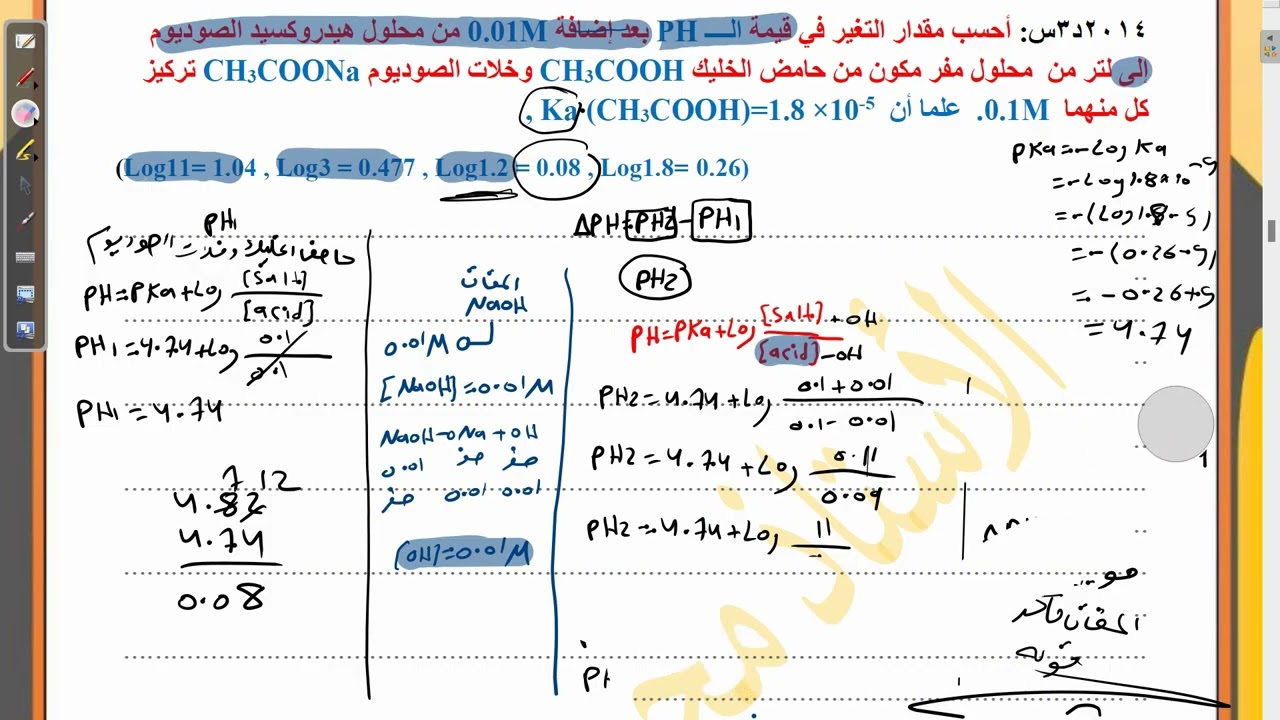 ٢٠١٤د٣س: أحسب مقدار التغير في قيمة الـــ PH بعد إضافة 0.01M من محلول هيدروكسيد الصوديوم
إلى لتر من محلول مفر مكون من حامض الخليك CH₃COOH وخلات الصوديوم CH₃COONa تركيز
كل منهما 0.1M. علما أن Ka (CH₃COOH)=1.8 ×10⁻⁵ ,
(Log11= 1.04 , Log3 = 0.477 , Log1.2 = 0.08 , Log1.8= 0.26)
PKa=-Log Ka
=-Log1.8x10⁻⁵
=-(Log1.8-5)
=-(0.26-5)
=-0.26+5
=4.74
ΔPH=PH2-PH1
PH1
PH=PKa+Log [Salt]/[acid]
PH1=4.74+Log 0.1/0.1
PH1=4.74
7 12
4.82
4.74
0.08
المضاف
NaOH
0.01M
[NaOH]=0.01M
NaOH→Na+OH
0.01 صفر صفر
صفر 0.01 0.01
[OH]=0.01M
PH2
PH=PKa+Log [Salt]+OH/[acid]-OH
PH2=4.74+Log 0.1+0.01/0.1-0.01
PH2=4.74+Log 0.11/0.09
PH2=4.74+Log 11
PH
المضاف
قوية
الأستاذ